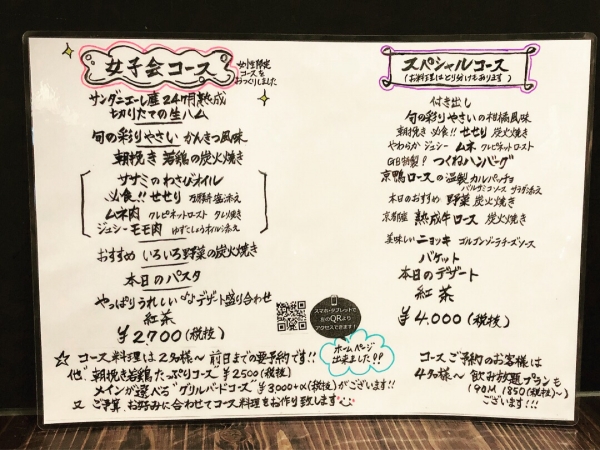 女子会コース
女性限定
コースを
おつくりしました
サンダニエーレ産24ヶ月熟成
切りたての生ハム
旬の彩りやさい かんきつ風味
朝挽き 若鶏の炭火焼き
ササミのわさびオイル
必食!! せせり 万願寺塩添え
ムネ肉 クレピネットロスト タレ焼き
ジューシーモモ肉 ゆずこしょうオイル添え
おすすめ いろいろ野菜の炭火焼き
本日のパスタ
やっぱりうれしい♪♪デザート盛り合わせ
紅茶
¥2,700(税抜)
スマホ・タブレットで
左のQRより
アクセスできます!
ホームページ
出来ました!?
スペシャルコース
(お料理はとり分けてあります)
付き出し
旬の彩りやさいの柑橘風味
朝挽き 必食!! せせり 炭火焼き
やわらか ジューシー ムネ クレピネットロスト
GB特製! つくねハンバーグ
京鴨ロースの温製カルパッチョ
バルサミコソース サラダ添え
本日のおすすめ 野菜 炭火焼き
京都産 熟成牛ロース 炭火焼き
美味しいニョッキ ゴルゴンゾーラチーズソース
バケット
本日のデザート
紅茶
¥4,000(税抜)
☆ コース料理は2名様〜 前日までの要予約です!!
他 朝挽き若鶏たっぷりコース ¥2500(税抜)
メインが選べる"グリルバードコース" ¥3000+α(税抜)がございます!!
又 ご予算 お好みに合わせてコース料理をお作り致します
コースご予約のお客様は
4名様〜 飲み放題プランも
(90M 1850(税抜)〜)
ございます!!!